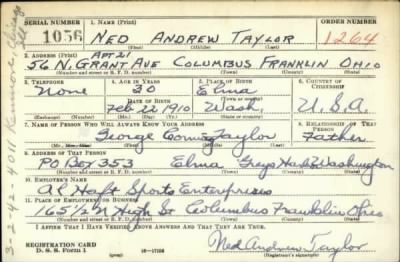 SERIAL NUMBER 1. NAME (Print) ORDER NUMBER
1056 NED ANDREW TAYLOR 1264
(First) (Middle) (Last)
2. ADDRESS (Print) APT 21
56 N. GRANT AVE COLUMBUS FRANKLIN OHIO
(Number and street or R. F. D. number) (Town) (County) (State)
3. TELEPHONE 4. AGE IN YEARS 5. PLACE OF BIRTH 6. COUNTRY OF CITIZENSHIP
None 30 Elma
DATE OF BIRTH
Feb 22 1910 Wash. U.S.A.
(Exchange) (Number) (Mo.) (Day) (Yr.) (State or country)
7. NAME OF PERSON WHO WILL ALWAYS KNOW YOUR ADDRESS 8. RELATIONSHIP OF THAT PERSON
George Taylor Father
(Mr., Mrs., Miss) (First) (Middle) (Last)
9. ADDRESS OF THAT PERSON
PO Box 353 Elma Washington
(Number and street or R. F. D. number) (Town) (County) (State)
10. EMPLOYER'S NAME
Al Haft Sports Enterprises
11. PLACE OF EMPLOYMENT OR BUSINESS
165½ N High St Columbus Franklin Ohio
(Number and street or R. F. D. number) (Town) (County) (State)
I AFFIRM THAT I HAVE VERIFIED ABOVE ANSWERS AND THAT THEY ARE TRUE.
REGISTRATION CARD
D. S. S. Form 1 16—17105
Ned Andrew Taylor
(Registrant's signature)
3-2-42-4011 Kenmore, Chicago Ill